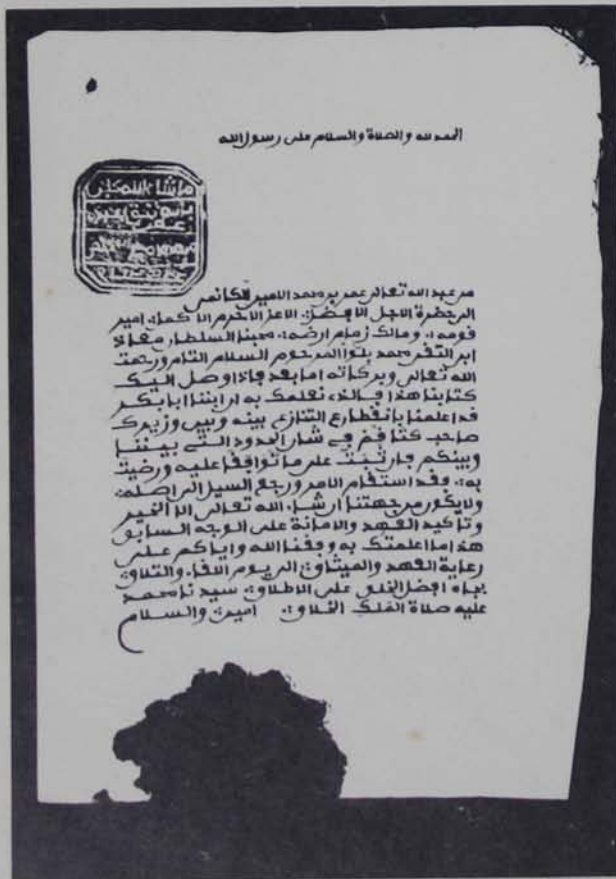 الحمد لله والصلاة والسلام على رسول الله
ما شاء الله
من عبد الله تعالى عمر بن محمد الامين الكانمى
الى حضرة الاجل الافضل الاعز الاكرم الاكمل امير
قومه ومالك زمام ارضه محبنا السلطان معاذ
ابن التقى محمد بلو المرحوم السلام التام ورحمت
الله تعالى وبركاته اما بعد فاذا وصل اليك
كتابنا هذا فالذى نعلمك به ان ابننا ابا بكر
قد اعلمنا بانقطاع التنازع بينه وبين وزيرك
صاحب كتاقم فى شان الحدود التى بيننا
وبينكم فان ثبتت على ما توافقا عليه ورضيت
به فقد استقام الامر ورجع السيل الى اصله
ولا يكون من جهتنا ان شاء الله تعالى الا الخير
وتاكيد العهد والامانة على الوجه السابق
هذا ما اعلمتك به وفقنا الله واياكم على
رعاية العهد والميثاق الى يوم اللقاء والتلاق
بجاه افضل الخلق على الاطلاق سيدنا محمد
عليه صلاة الملك الخلاق امين والسلام